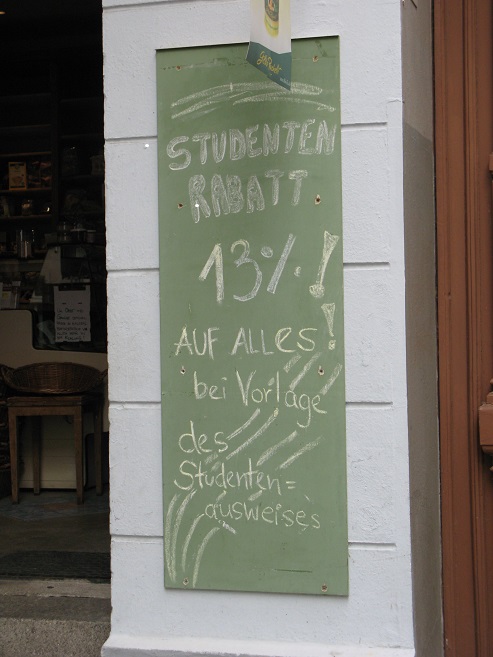 STUDENTEN
RABATT
13%!
AUF ALLES!
bei Vorlage
des
Studenten=
ausweises